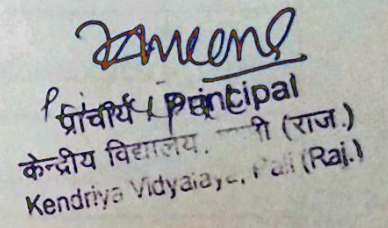 प्राचार्य / Principal
केन्द्रीय विद्यालय, पाली (राज.)
Kendriya Vidyalaya, Pali (Raj.)